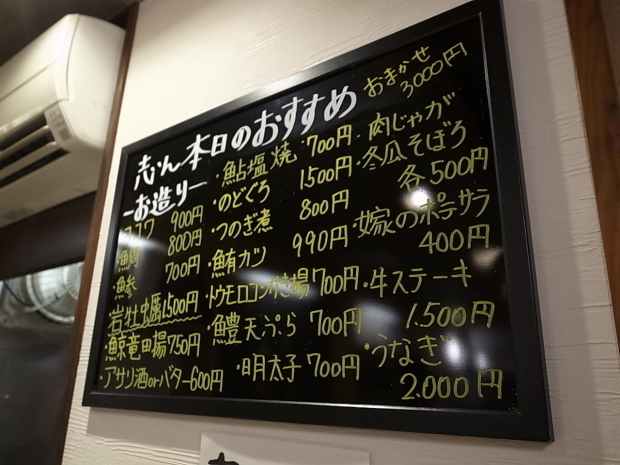 志ん 本日のおすすめ
おまかせ
3000円
-お造り-
900円
鯛 800円
鯵 700円
・岩牡蠣1,500円
・鯨竜田揚750円
・アサリ酒orバター600円
・鮎塩焼 700円
・のどぐろ 1,500円
・つのぎ煮 800円
・鮪カツ 990円
・トウモロコシかき揚700円
・鱧天ぷら 700円
・明太子 700円
・肉じゃが
・冬瓜そぼろ
各500円
・嫁のポテサラ
400円
・牛ステーキ
1.500円
・うなぎ
2.000円